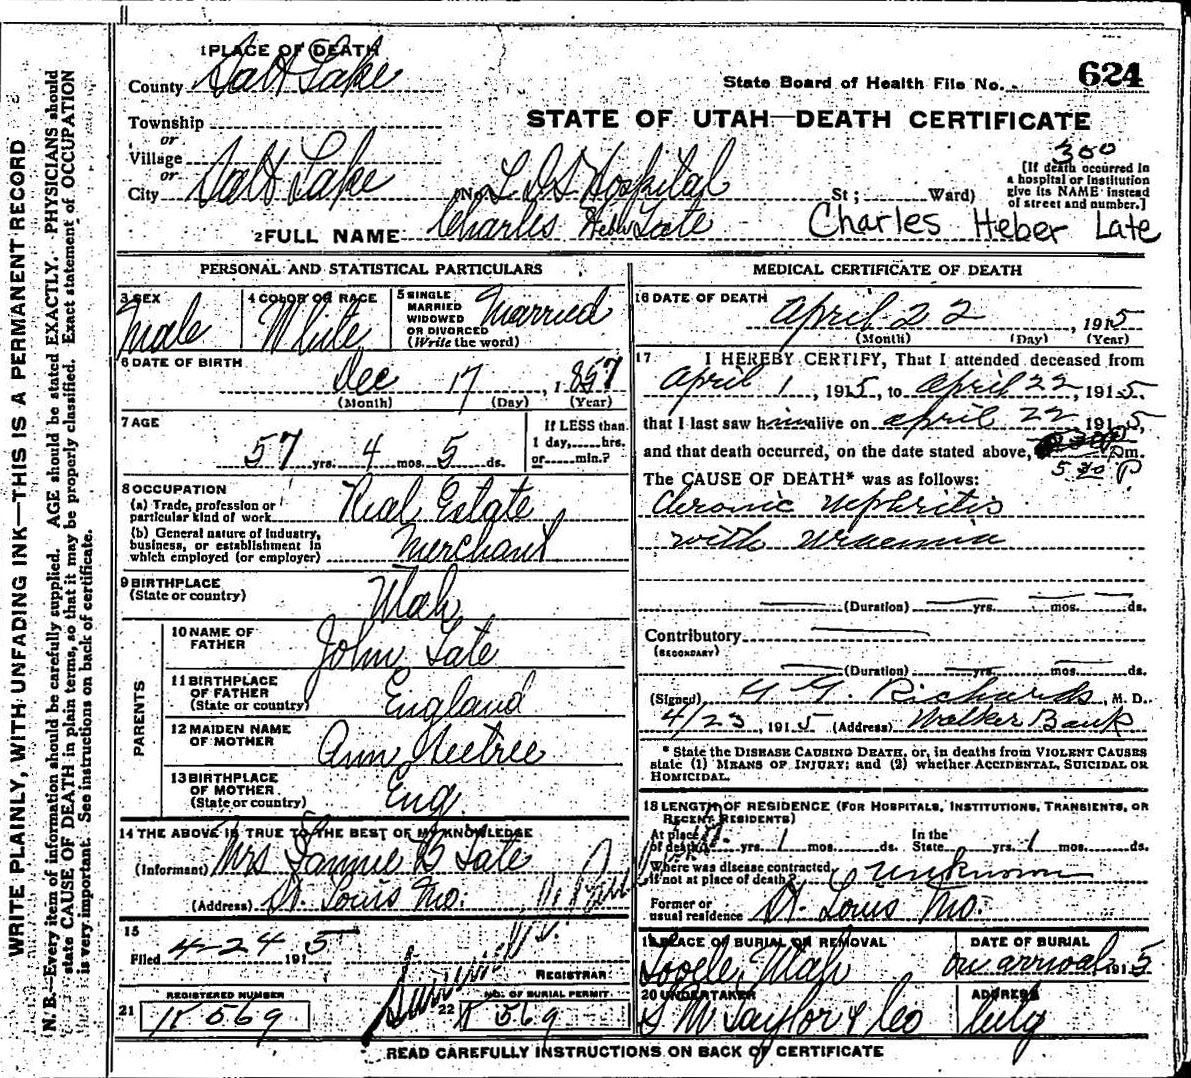 WRITE PLAINLY, WITH UNFADING INK—THIS IS A PERMANENT RECORD
N. B.—Every item of information should be carefully supplied. AGE should be stated EXACTLY. PHYSICIANS should
state CAUSE OF DEATH in plain terms, so that it may be properly classified. Exact statement of OCCUPATION
is very important. See instructions on back of certificate.
1 PLACE OF DEATH
County Salt Lake
State Board of Health File No. 624
Township
or
Village
or
City Salt Lake
STATE OF UTAH—DEATH CERTIFICATE
300
(No. L D S Hospital St; Ward)
[If death occurred in
a hospital or institution
give its NAME instead
of street and number.]
2 FULL NAME Charles Heber Tate Charles Heber Late
PERSONAL AND STATISTICAL PARTICULARS
3 SEX
Male
4 COLOR OR RACE
White
5 SINGLE
MARRIED
WIDOWED
OR DIVORCED
(Write the word)
Married
6 DATE OF BIRTH
Dec 17, 1857
(Month) (Day) (Year)
7 AGE
57 yrs. 4 mos. 5 ds.
If LESS than
1 day, hrs.
or min.?
8 OCCUPATION
(a) Trade, profession or
particular kind of work Real Estate
(b) General nature of industry,
business, or establishment in
which employed (or employer) Merchant
9 BIRTHPLACE
(State or country) Utah
PARENTS
10 NAME OF
FATHER John Tate
11 BIRTHPLACE
OF FATHER
(State or country) England
12 MAIDEN NAME
OF MOTHER Ann
13 BIRTHPLACE
OF MOTHER
(State or country) Eng.
14 THE ABOVE IS TRUE TO THE BEST OF MY KNOWLEDGE
(Informant) Mrs Fannie B Tate
(Address) St. Louis Mo.
15
Filed 4-24 1915
REGISTRAR
REGISTERED NUMBER
21 K 569
NO. OF BURIAL PERMIT
22 K 569
MEDICAL CERTIFICATE OF DEATH
16 DATE OF DEATH
April 22, 1915
(Month) (Day) (Year)
17 I HEREBY CERTIFY, That I attended deceased from
April 1, 1915, to April 22, 1915
that I last saw him alive on April 22 1915,
and that death occurred, on the date stated above, Pm.
5 30 P
The CAUSE OF DEATH* was as follows:
Chronic nephritis
with uraemia
(Duration) yrs. mos. ds.
Contributory
(SECONDARY)
(Duration) yrs. mos. ds.
(Signed) G G. Richards, M. D.
4/23, 1915 (Address) Walker Bank
* State the DISEASE CAUSING DEATH, or, in deaths from VIOLENT CAUSES
state (1) MEANS OF INJURY; and (2) whether ACCIDENTAL, SUICIDAL OR
HOMICIDAL.
18 LENGTH OF RESIDENCE (FOR HOSPITALS, INSTITUTIONS, TRANSIENTS, OR
RECENT RESIDENTS)
At place
of death yrs. 1 mos. ds.
In the
State yrs. 1 mos. ds.
Where was disease contracted,
if not at place of death? unknown
Former or
usual residence St. Louis Mo.
19 PLACE OF BURIAL OR REMOVAL
Tooele, Utah
DATE OF BURIAL
on arrival 1915
20 UNDERTAKER
S M Taylor & Co
ADDRESS
City
READ CAREFULLY INSTRUCTIONS ON BACK OF CERTIFICATE